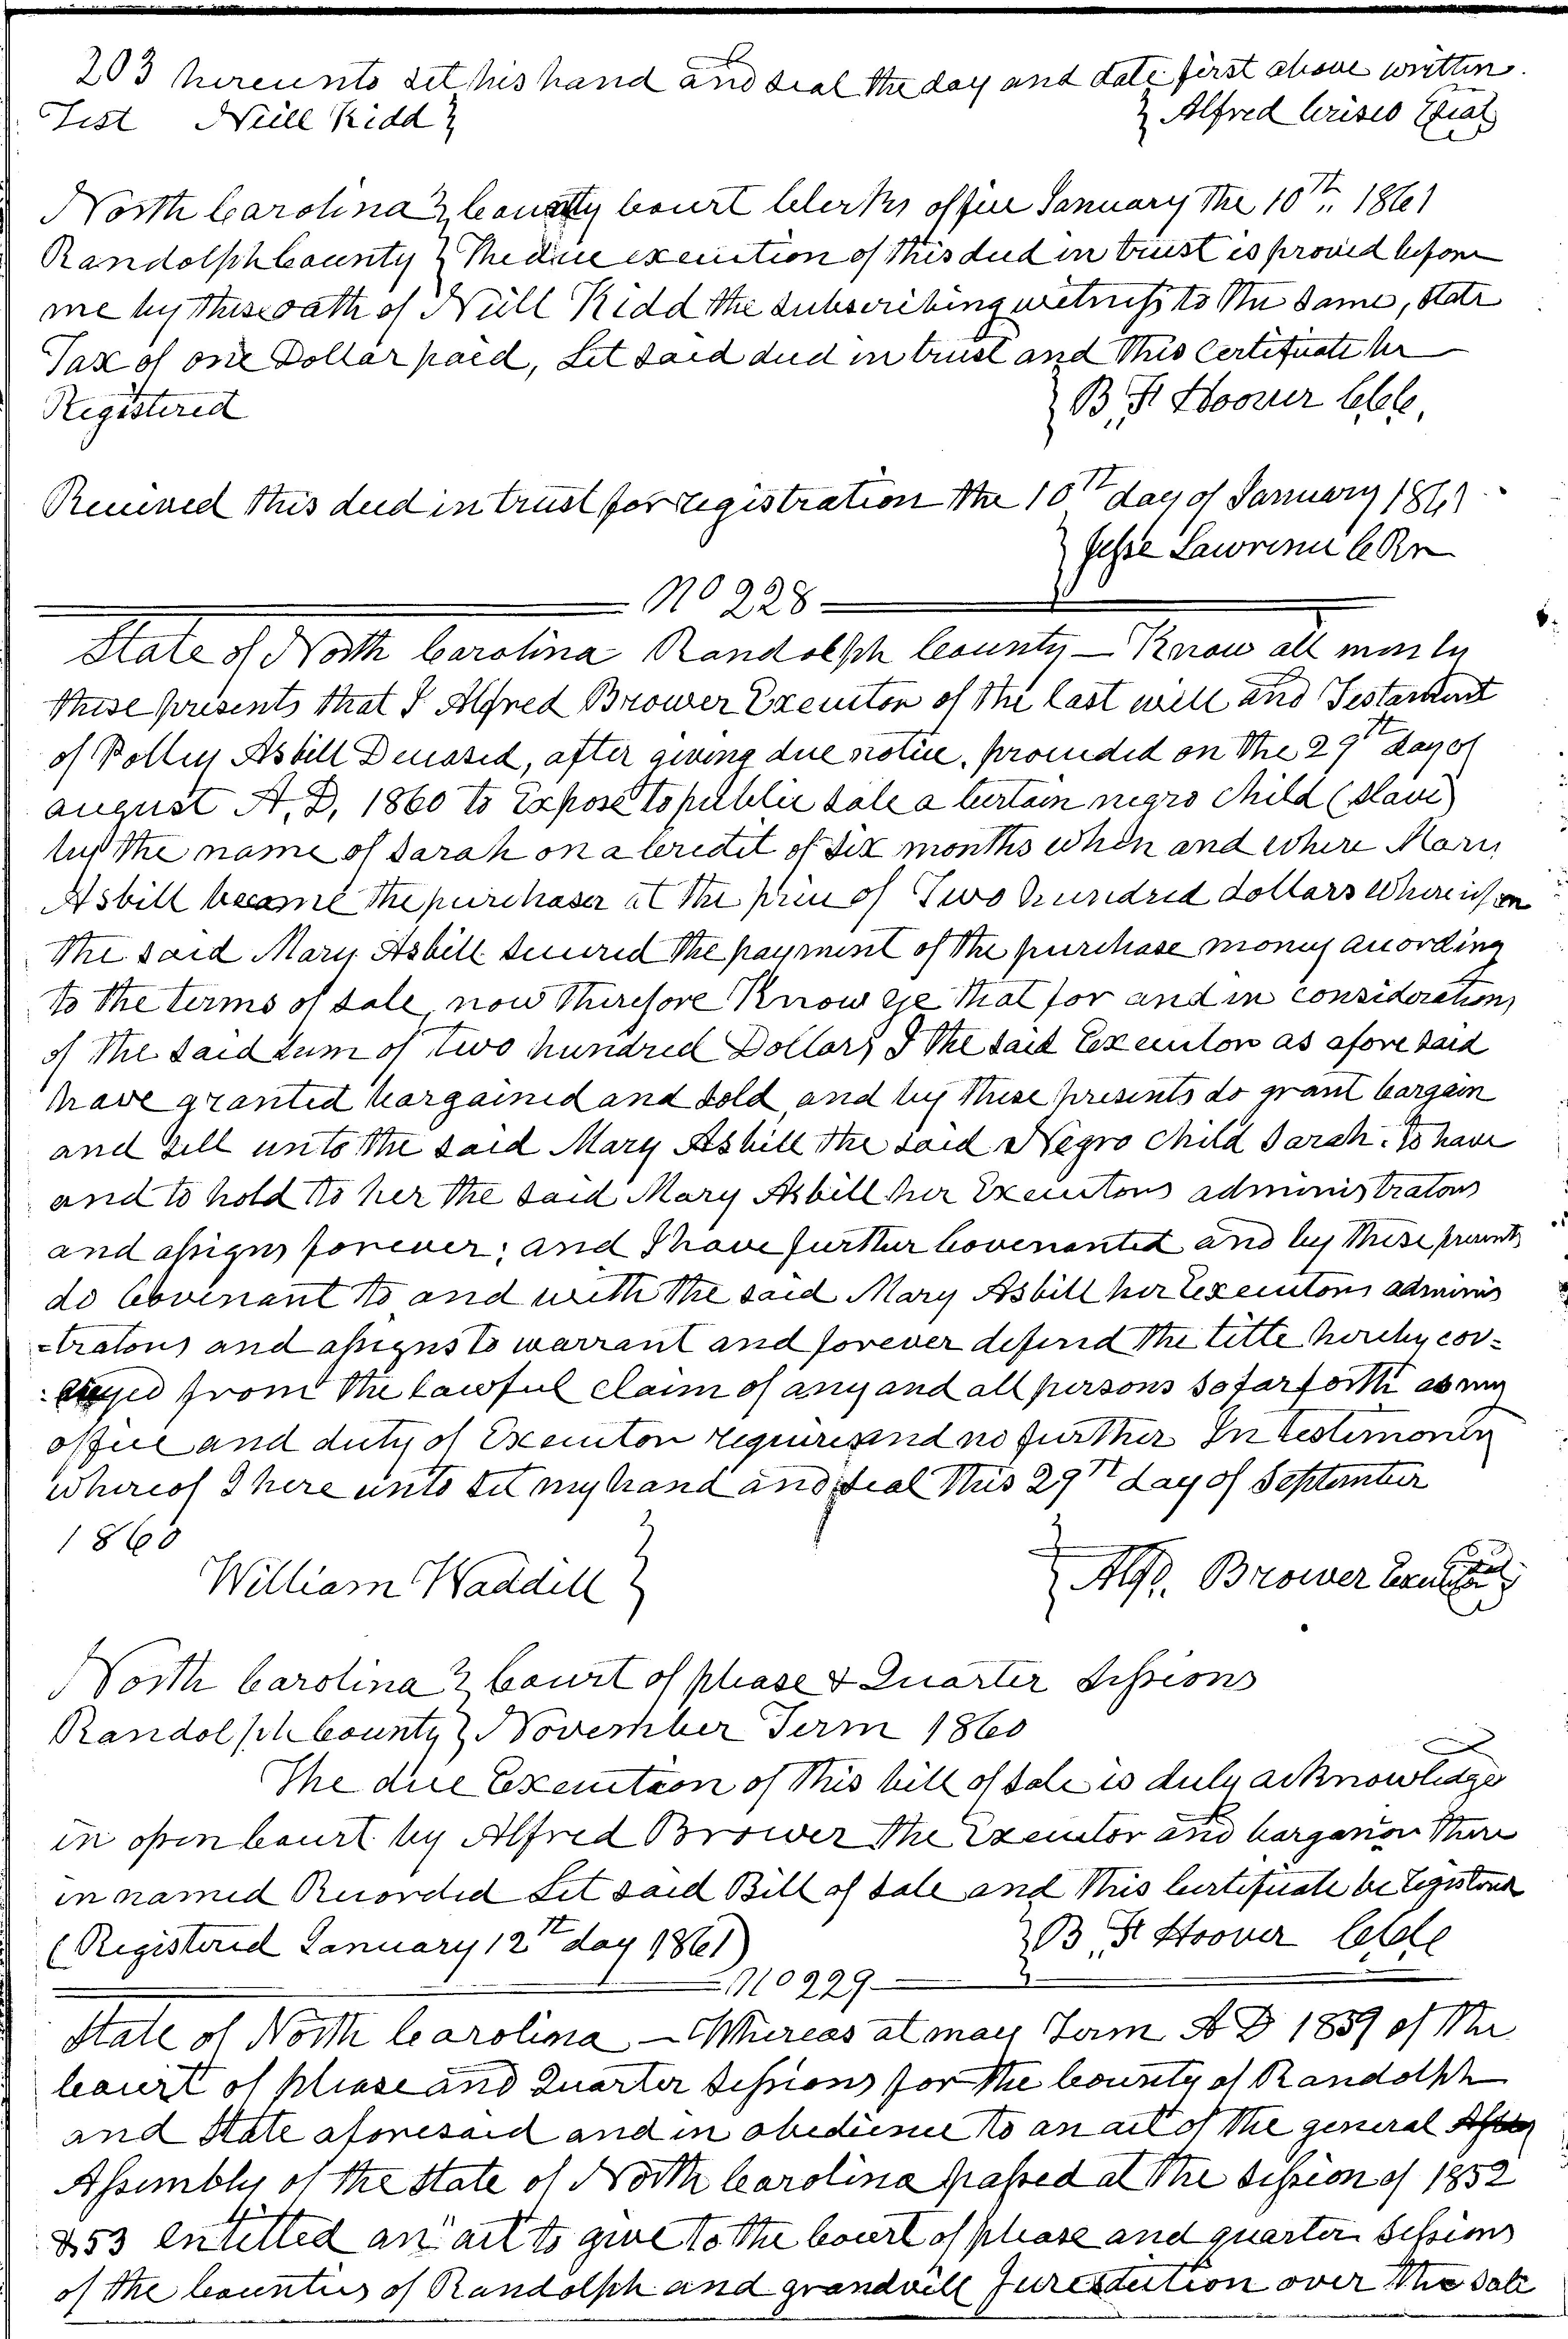 203 hereunto set his hand and seal the day and date first above written.
Test Neill Kidd } } Alfred Crisco (Seal)
North Carolina } County Court Clerks office January the 10th. 1861
Randolph County } The due execution of this deed in trust is proved before
me by the oath of Neill Kidd the subscribing witness to the same, State
Tax of one Dollar paid, Let said deed in trust and this Certificate be
Registered } B. F. Hoover C.C.C.
Received this deed in trust for registration the 10th day of January 1861
} Jesse Lawrence C Rr
No 228
State of North Carolina Randolph County — Know all men by
these presents that I Alfred Brower Executor of the last will and Testament
of Polley Asbill Deceased, after giving due notice, proceeded on the 29th day of
august A, D, 1860 to Expose to public sale a certain negro child (slave)
by the name of Sarah on a credit of six months when and where Mary
Asbill became the purchaser at the price of Two hundred dollars whereupon
the said Mary Asbill secured the payment of the purchase money according
to the terms of sale, now therefore Know ye that for and in consideration
of the said sum of two hundred Dollars I the said Executor as aforesaid
have granted bargained and sold, and by these presents do grant bargain
and sell unto the said Mary Asbill the said Negro child Sarah. To have
and to hold to her the said Mary Asbill her Executors administrators
and assigns forever; and I have further Covenanted and by these presents
do Covenant to and with the said Mary Asbill her Executors adminis
-trators and assigns to warrant and forever defend the title hereby con-
-veyed from the lawful claim of any and all persons so far forth as my
office and duty of Executor requires and no further In testimony
whereof I here unto set my hand and seal this 29th day of September
1860
William Waddill } } Alfd. Brower Executor (Seal)
North Carolina } Court of please & Quarter Sessions
Randolph County } November Term 1860
The due Execution of this bill of sale is duly acknowledge
in open Court by Alfred Brower the Executor and bargainor there
in named Recorded Let said Bill of sale and this Certificate be registered
(Registered January 12th day 1861) } B. F. Hoover C.C.C.
No 229
State of North Carolina — Whereas at may Term A D 1859 of the
Court of please and Quarter Sessions for the County of Randolph
and State aforesaid and in obedience to an act of the general
Assembly of the State of North Carolina passed at the session of 1852
& 53 entitled an "act to give to the Court of please and quarter Sessions
of the Counties of Randolph and grandvill Juresdiction over the sale